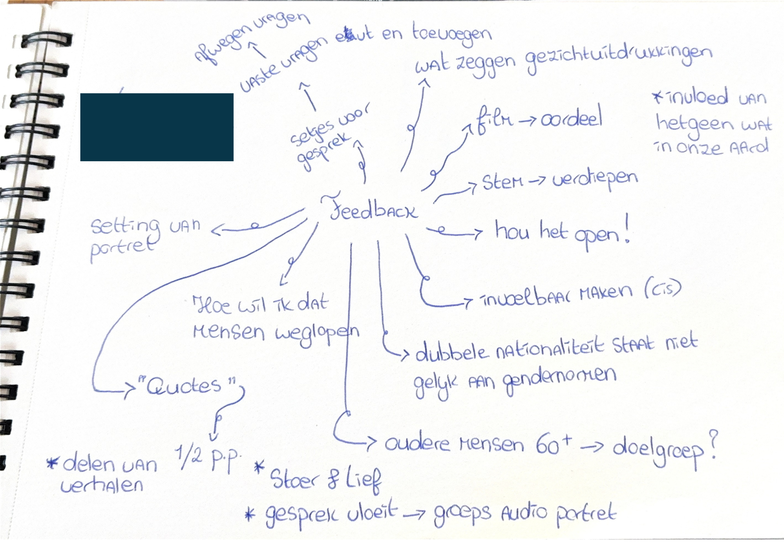 Afwegen vragen
vaste vragen eruit en toevoegen
wat zeggen gezichtuitdrukkingen
setjes voor
gesprek
film → oordeel
* invloed van
hetgeen wat
in onze aard
stem → verdiepen
Feedback
setting van
portret
hou het open!
Hoe wil ik dat
mensen weglopen
invoelbaar maken (cis)
dubbele nationaliteit staat niet
gelijk aan gendernormen
"Quotes"
1/2 p.p.
oudere mensen 60+ → doelgroep?
* delen van
verhalen
* Stoer & Lief
* gesprek vloeit → groeps audio portret